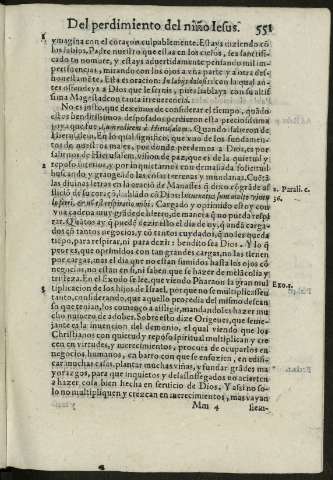 Del perdimiento del niño Iesus. 551
ymagina con el coraçon culpablemente. Estays diziendo cõ
los labios, Padre nuestro que estas en los cielos, sea sanctifi-
cado tu nombre, y estays aduertidamente pensando mil im-
pertinencias, mirando con los ojos a vna parte y a otra des-
honestamente. Esta es oracion: In labijs dolosis: con la qual
antes ofendeys a Dios que le siruis, pues hablays con su altis-
sima Magestad con tanta irreuerencia.
Nos justo, que dexemos de considerar el tiempo, quãdo
estos benditissimos desposados perdieron esta preciosissima
joya que fue, Cum redirent à Hierusalem. Quando salieron de
Hierusalem. En lo qual significò, que vno de los fundamen-
tos de nuestros males, por donde perdemos a Dios, es por
salirnos de Hierusalem, vision de paz, que es de la quietud y
reposo interior, y por inquietarnos con demasiada solicitud
buscando y grangeando las cosas terrenas y mundanas. Cuẽtã
las diuinas letras en la oraciõ de Manasses
2. Parali. c.
36.
lo ferri, & nõ est respiratio mihi. Cargado y oprimido estoy con
vna cadena muy grãde de hierro, de manera q̃ no puedo respi
rar. Quãtos ay q̃ puedẽ dezir esto el dia de oy, q̃ andã carga-
dos cõ tantos negocios, y cõ tantos cuydados, q̃ no les queda
tiẽpo, para respirar, ni para dezir: bendito sea Dios. Y lo q̃
peor es, que oprimidos con tan grandes cargas, no las tienen
por cargas, mas el dia que no estan sumidos hasta los ojos cõ
negocios, no estan en si, ni saben que se hazer de melãcolia y
tristeza. En el Exodo se lee, que viendo Pharaon la gran mul
Exo.1.
tiplicacion de los hijos de Israel, por que no se multiplicassen
tanto, considerando, que aquello procedia del mismo descan
so que tenian, los començo a afligir, mandandoles hazer mu
cho numero de adobes. Sobre esto dize Origenes, que seme-
jante es la inuencion del demonio, el qual viendo que los
Christianos con quietud y reposo spiritual multiplican y cre
cen en virtudes, y merecimientos, procura de ocuparlos en
negocios humanos, en barro con que se ensuzien, en edifi-
car muchas casas, plantar muchas viñas, y fundar grãdes ma
yorazgos, para que inquietos y desassossegados no acierten
a hazer cosa bien hecha en seruicio de Dios. Y assi no so-
lo no multipliquen y crezcan en merecimientos, mas vayan
Mm 4